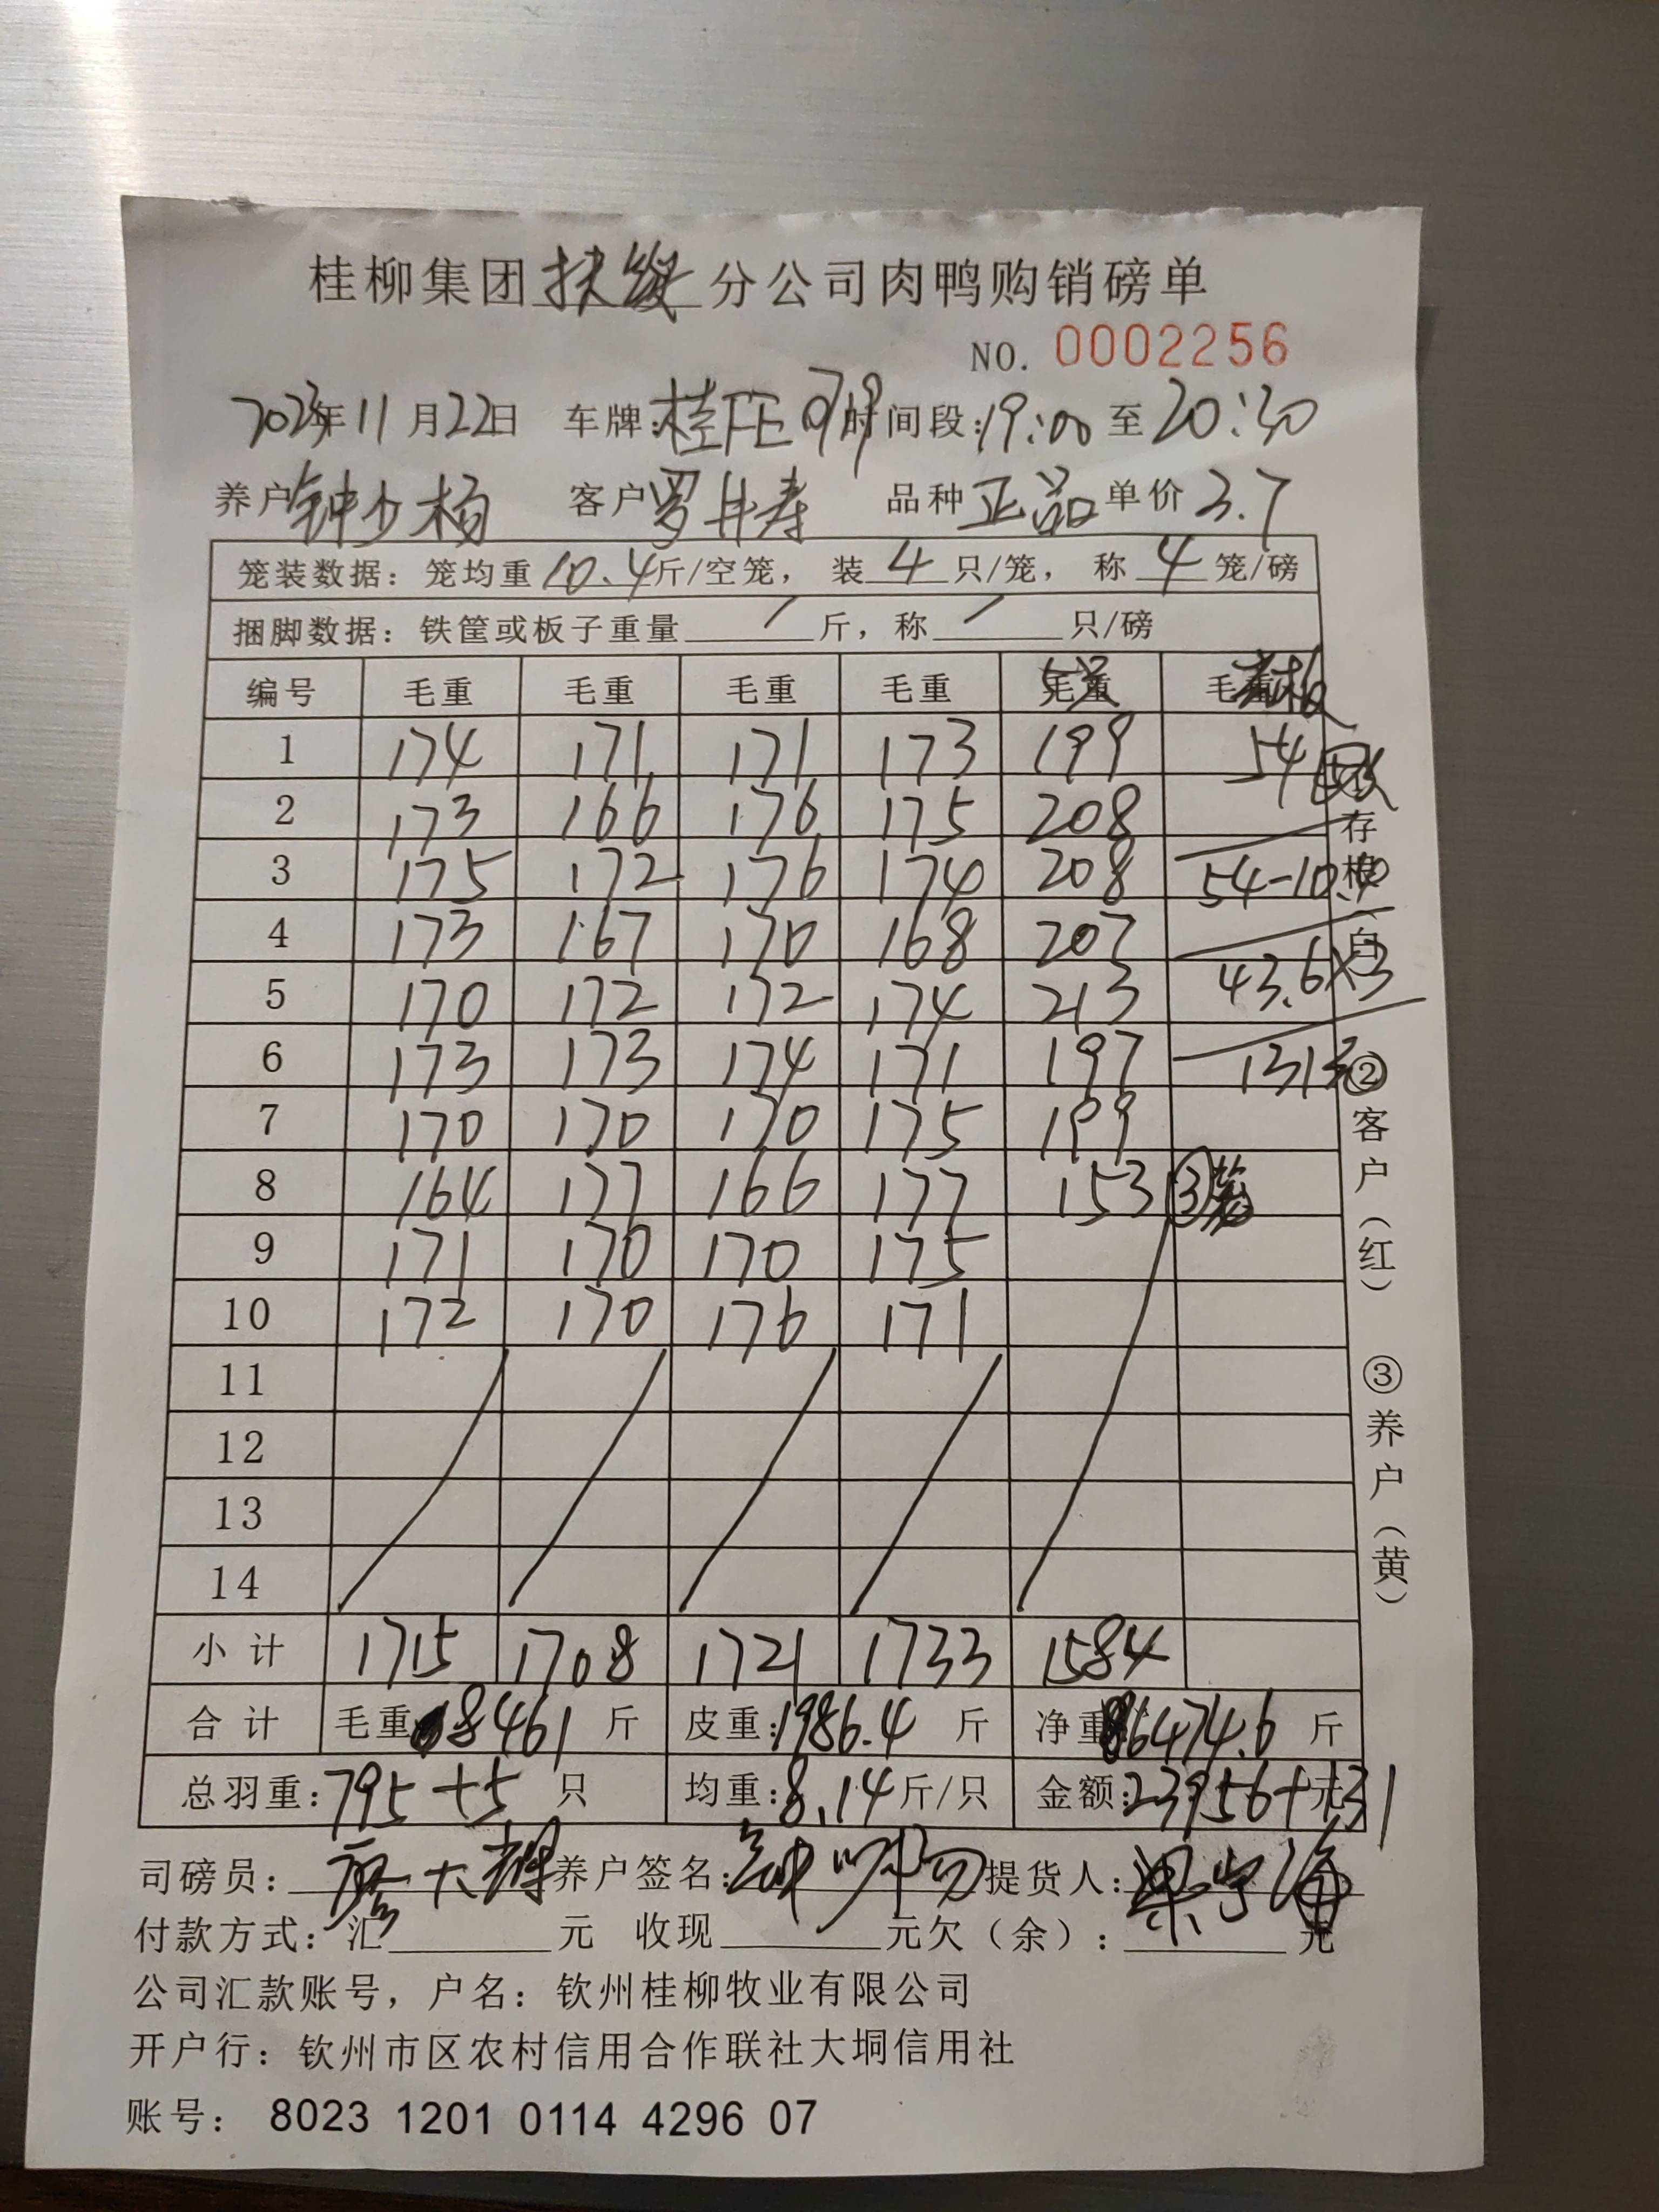 桂柳集团扶绥分公司肉鸭购销磅单
NO. 0002256
2023年11月22日 车牌: 时间段:19:00至20:30
养户 钟少杨 客户 罗井寿 品种 正品 单价 3.7
笼装数据: 笼均重 10.4 斤/空笼, 装 4 只/笼, 称 4 笼/磅
捆脚数据: 铁筐或板子重量 / 斤, 称 / 只/磅
编号 毛重 毛重 毛重 毛重 毛重 毛重
1 174 171 171 173 199 54
2 173 166 176 175 208
3 175 172 176 174 208 54-10.4
4 173 167 170 168 207
5 170 172 172 174 213 43.6×3
6 173 173 174 171 197 131
7 170 170 170 175 199
8 164 177 166 177 153 ③笼
9 171 170 170 175
10 172 170 176 171
11
12
13
14
小计 1715 1708 1721 1733 1584
合计 毛重 8461 斤 皮重:1986.4 斤 净重 6474.6 斤
总羽重:795+5 只 均重:8.14斤/只 金额:23956+131元
司磅员: 养户签名: 提货人:
付款方式: 汇 元 收现 元欠(余): 元
公司汇款账号, 户名: 钦州桂柳牧业有限公司
开户行: 钦州市区农村信用合作联社大垌信用社
账号: 8023 1201 0114 4296 07
存根
白
②客户(红)
③养户(黄)